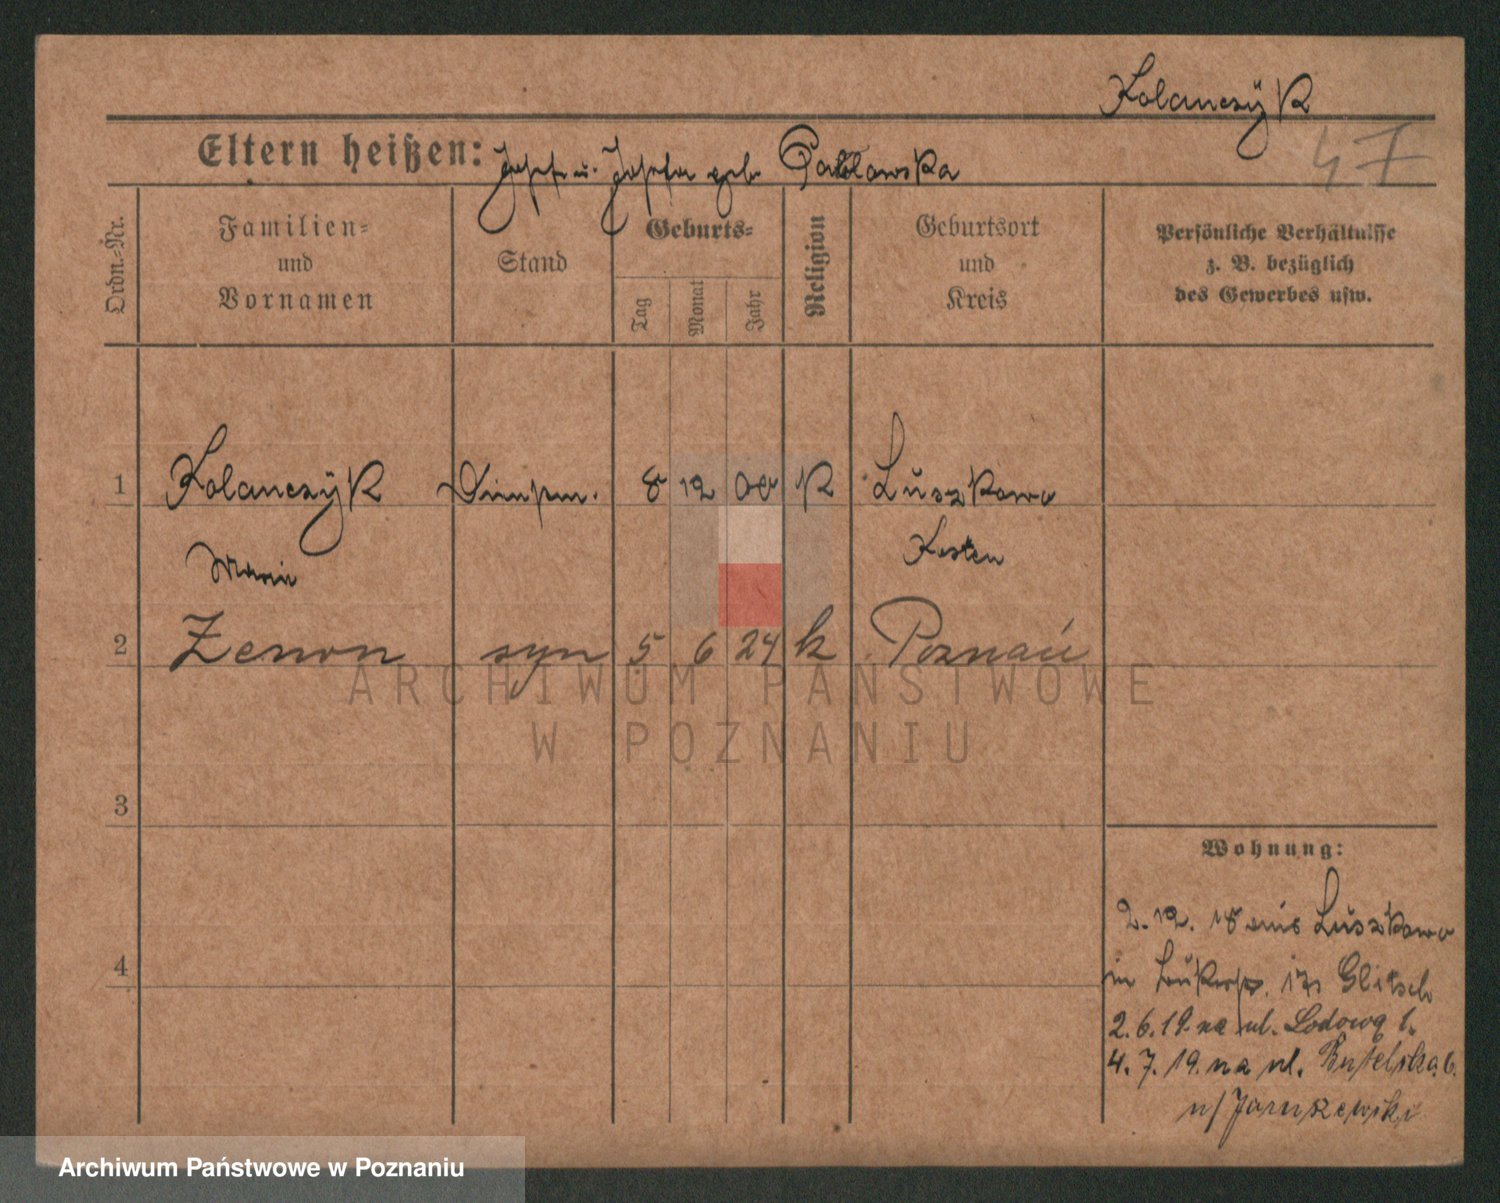 Kolanczÿk
Eltern heißen: Josef u. Josefa geb
47
Ordn.=Nr.
Familien= und Vornamen
Stand
Geburts=
Tag
Monat
Jahr
Religion
Geburtsort und Kreis
Persönliche Verhältnisse z. B. bezüglich des Gewerbes usw.
1 Kolanczÿk 8 12 00 K Luszkowo
Marie Kosten
2 Zenon syn 5 6 24 k Poznań
ARCHIWUM PAŃSTWOWE
W POZNANIU
3
Wohnung:
2. 12. 18 aus Luszkowo
4
in 17 Glitsch
2.6.19. na ul. Lodową 1.
4.7.19. na ul. Butelska 6.
u/Januszewski
Archiwum Państwowe w Poznaniu